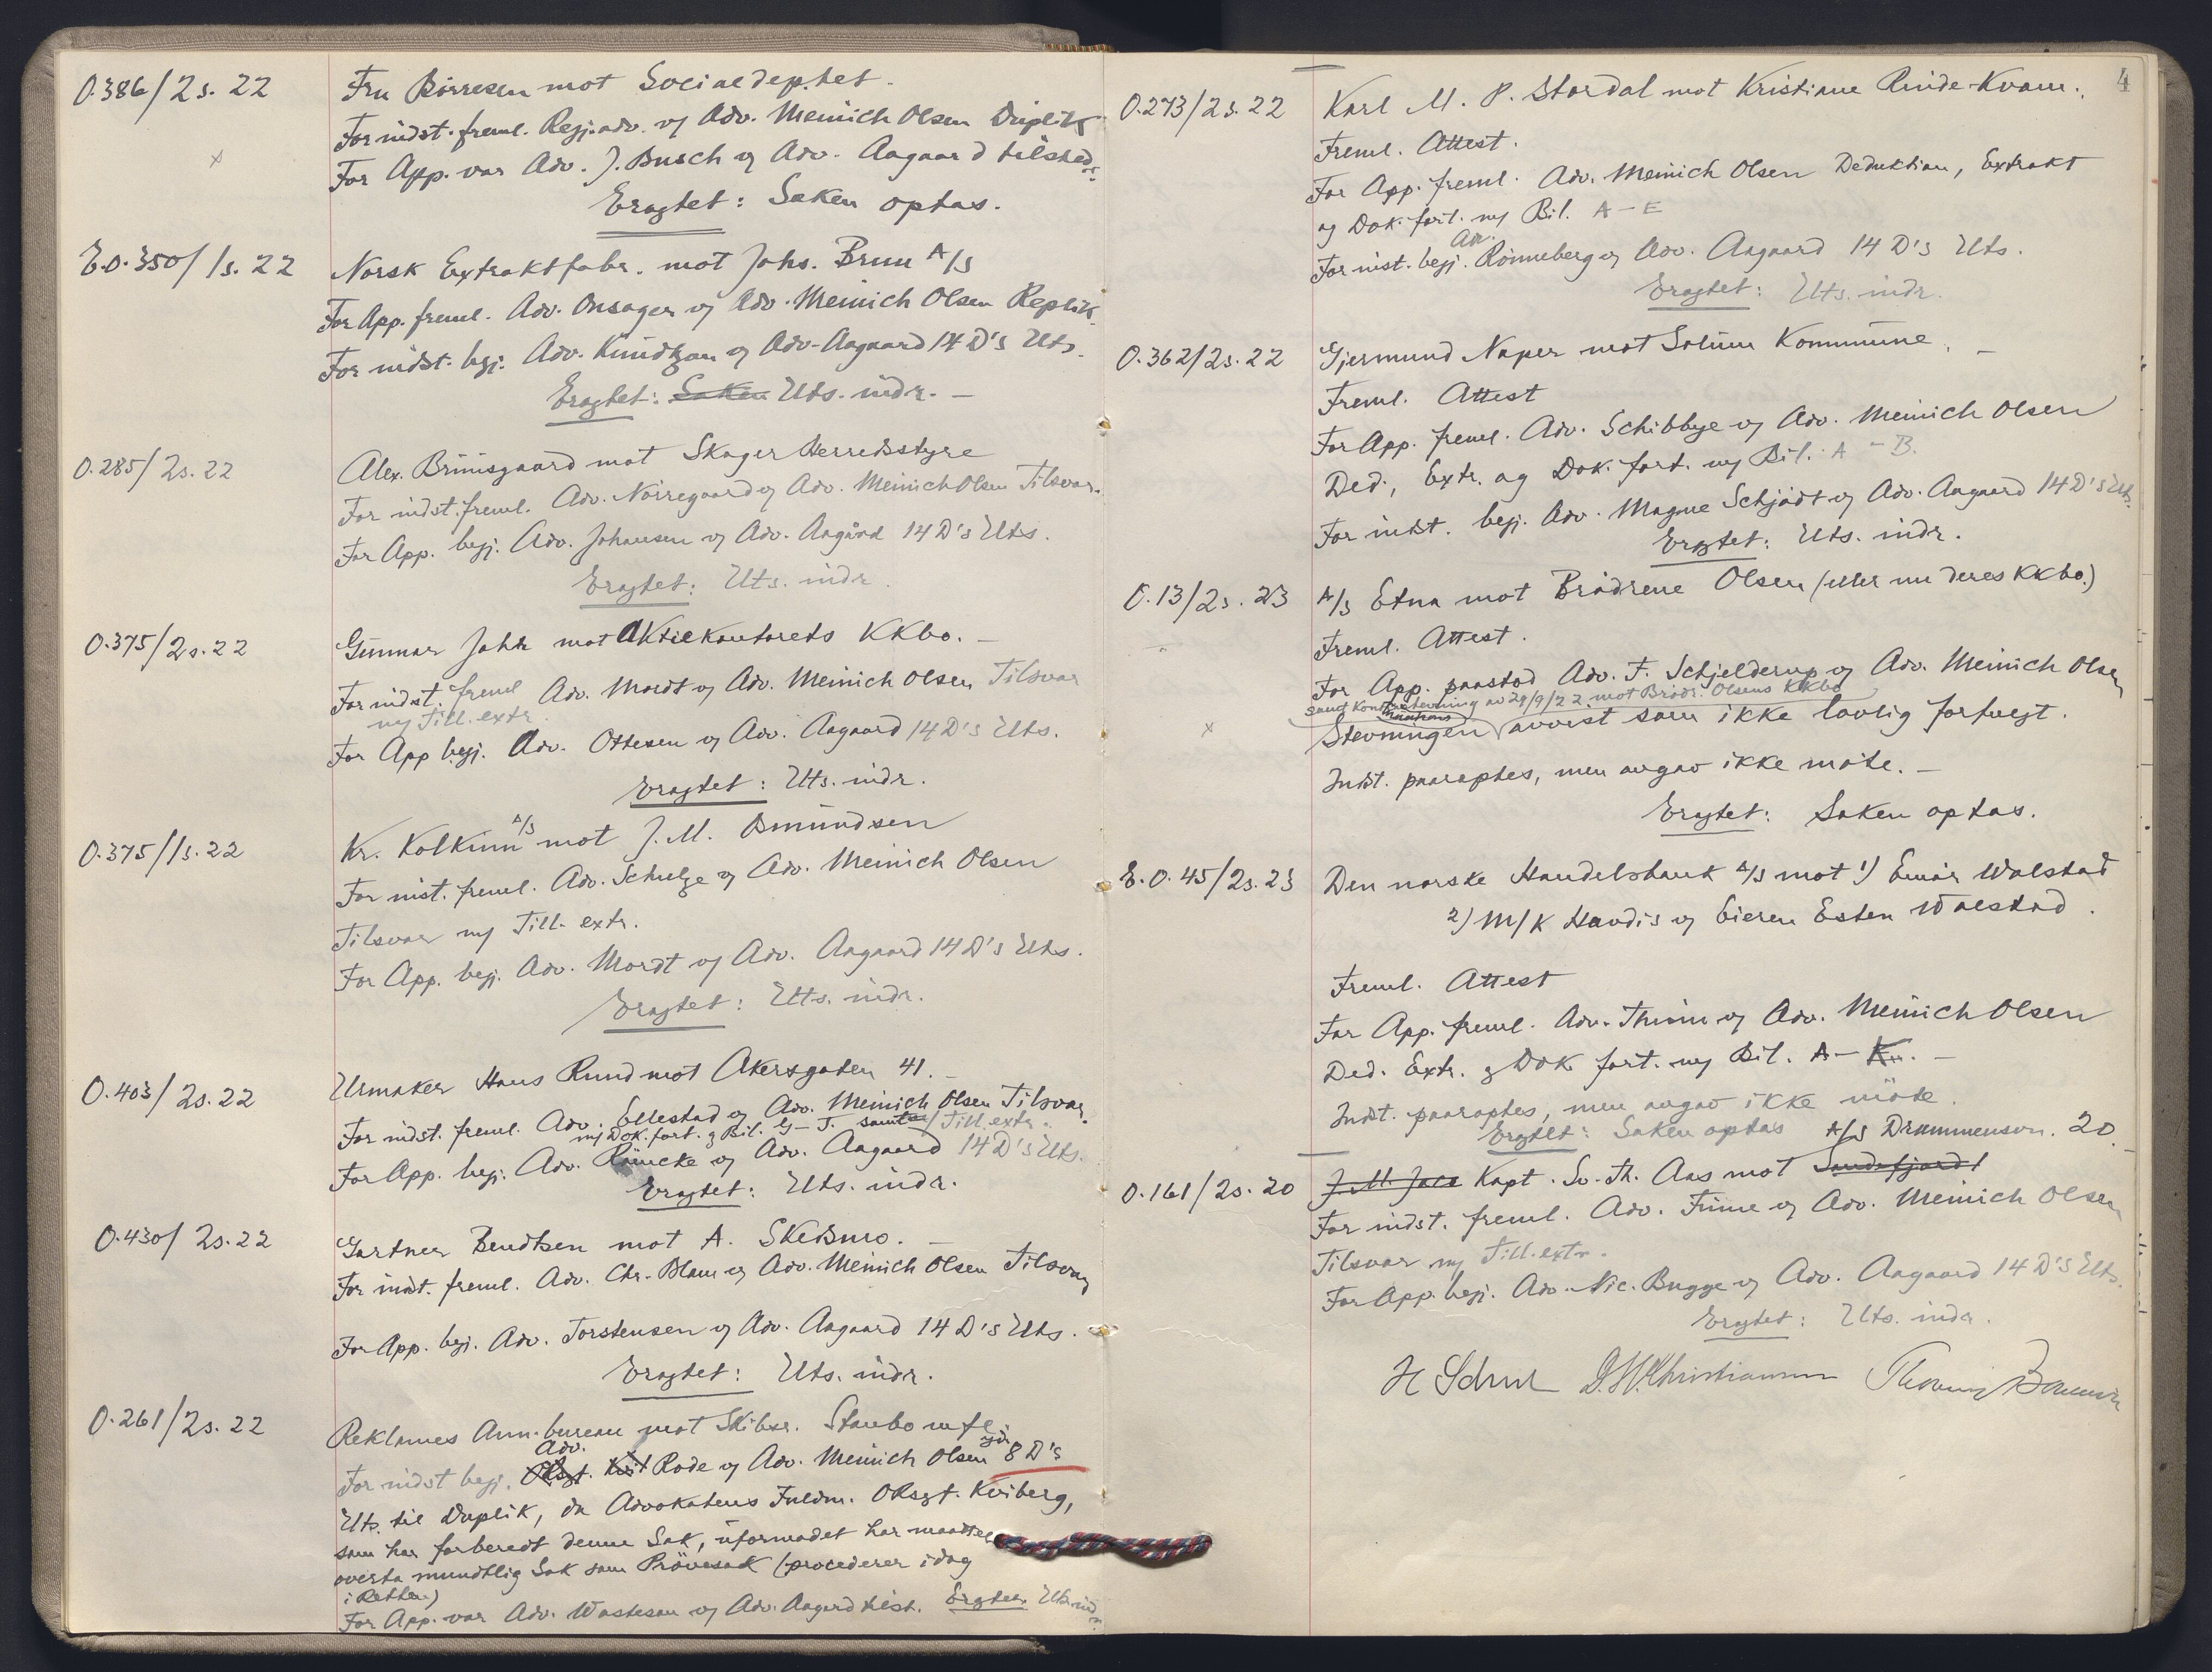 O.386/2s. 22
Fru Börresen mot Socialdeptet.
For indst. freml. Regj.adv. og Adv. Meinich Olsen Duplik
For App. var Adv. J. Busch og Adv. Aagaard tilstede.
Eragtet: Saken optas.
E.O.350/1s. 22
Norsk Extraktfabr. mot Johs. Bruu A/S
For App. freml. Adv. Onsager og Adv. Meinich Olsen Replik
For indst. begj. Adv. Knudtzon og Adv. Aagaard 14 D's Uts.
Eragtet: Saken Uts. indr. —
O.285/2s. 22
Alex. Bruusgaard mot Skoger Herredsstyre
For indst. freml. Adv. Nörregaard og Adv. Meinich Olsen Tilsvar.
For App. begj. Adv. Johansen og Adv. Aagård 14 D's Uts.
Eragtet: Uts. indr.
O.375/2s. 22
Gunnar Jahr mot Aktiekontorets KKbo. —
For indst. freml Adv. Mordt og Adv. Meinich Olsen Tilsvar
og Till. extr.
For App begj. Adv. Ottesen og Adv. Aagaard 14 D's Uts.
Eragtet: Uts. indr.
O.375/1s. 22
Kr. Kolkinn A/S mot J. M. Osmundsen
For inst. freml. Adv. Schulze og Adv. Meinich Olsen
Tilsvar og Till. extr.
For App. begj. Adv. Mordt og Adv. Aagaard 14 D's Uts.
Eragtet: Uts. indr.
O.403/2s. 22
Urmaker Hans Rund mot Akersgaten 41. —
For indst. freml. Adv. Ellestad og Adv. Meinich Olsen Tilsvar.
og Dok. fort. og Bil. G–J. samt Till. extr.
For App. begj. Adv. Räncke og Adv. Aagaard 14 D's Uts.
Eragtet: Uts. indr.
O.430/2s. 22
Gartner Bendtsen mot A. Skedsmo. —
For indst. freml. Adv. Chr. Blom og Adv. Meinich Olsen Tilsvar
For App. begj. Adv. Torstensen og Adv. Aagaard 14 D's Uts.
Eragtet: Uts. indr.
O.261/2s. 22
Reklames Ann.bureau mot Skibsr. Staubo mfl.
Adv.
For indst begj. Rode og Adv. Meinich Olsen 8 D's
Uts. til Duplik, da Advokatens Fuldm. ORsgt. Kviberg,
som har forberedt denne Sak, uformodet har maattet
overta mundtlig Sak som Prövesak (procederer idag
i Retten)
For App. var Adv. Wastesen og Adv. Aagard tilst. Eragtet Uts. ind
4
O.273/2s. 22
Karl M. P. Stordal mot Kristiane Rinde-Kvam.
Freml. Attest.
For App. freml. Adv. Meinich Olsen Deduktion, Extrakt
og Dok. fort. og Bil. A – E
For inst. begj. Adv. Rönneberg og Adv. Aagaard 14 D's Uts.
Eragtet: Uts. indr.
O.362/2s. 22
Gjermund Naper mot Solum Kommune. —
Freml. Attest
For App. freml. Adv. Schibbye og Adv. Meinich Olsen
Ded., Extr. og Dok. fort. og Bil. A – B.
For indst. begj. Adv. Magne Schjödt og Adv. Aagaard 14 D's Uts.
Eragtet: Uts. indr.
O.13/2s. 23
A/S Etna mot Brödrene Olsen (eller nu deres KKbo.)
Freml. Attest.
For App. paastod Adv. F. Schjelderup og Adv. Meinich Olsen
samt Konstevning av 29/9/22 mot Brödr. Olsens KKbo
Stevningen avvist som ikke lovlig forfulgt.
Indst. paaroptes, men avgav ikke möte. —
Eragtet: Saken optas.
E.O.45/2s. 23
Den norske Handelsbank A/S mot 1) Einar Walstad
2) M/K Havdis og Eieren Esten Walstad.
Freml. Attest
For App. freml. Adv. Thinn og Adv. Meinich Olsen
Ded. Extr. og Dok fort. og Bil. A – K. —
Indst. paaroptes, men avgav ikke möte.
Eragtet: Saken optas
A/S Drammensvn. 20.
O.161/2s. 20
Kapt. Sv. Th. Aas mot Sandefjord
For indst. freml. Adv. Fürre og Adv. Meinich Olsen
Tilsvar og Till. extr.
For App. begj. Adv. Nic. Bugge og Adv. Aagaard 14 D's Uts.
Eragtet: Uts. indr.